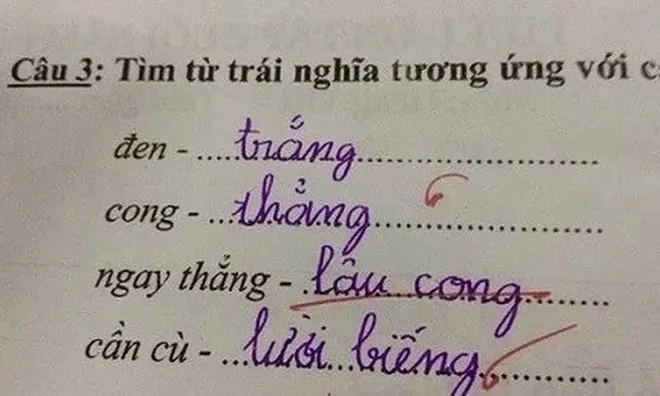 Câu 3: Tìm từ trái nghĩa tương ứng với
đen - .....trắng..............................
cong - ...thẳng.............................
ngay thẳng - .lâu cong.........
cần cù - ...lười..biếng.............